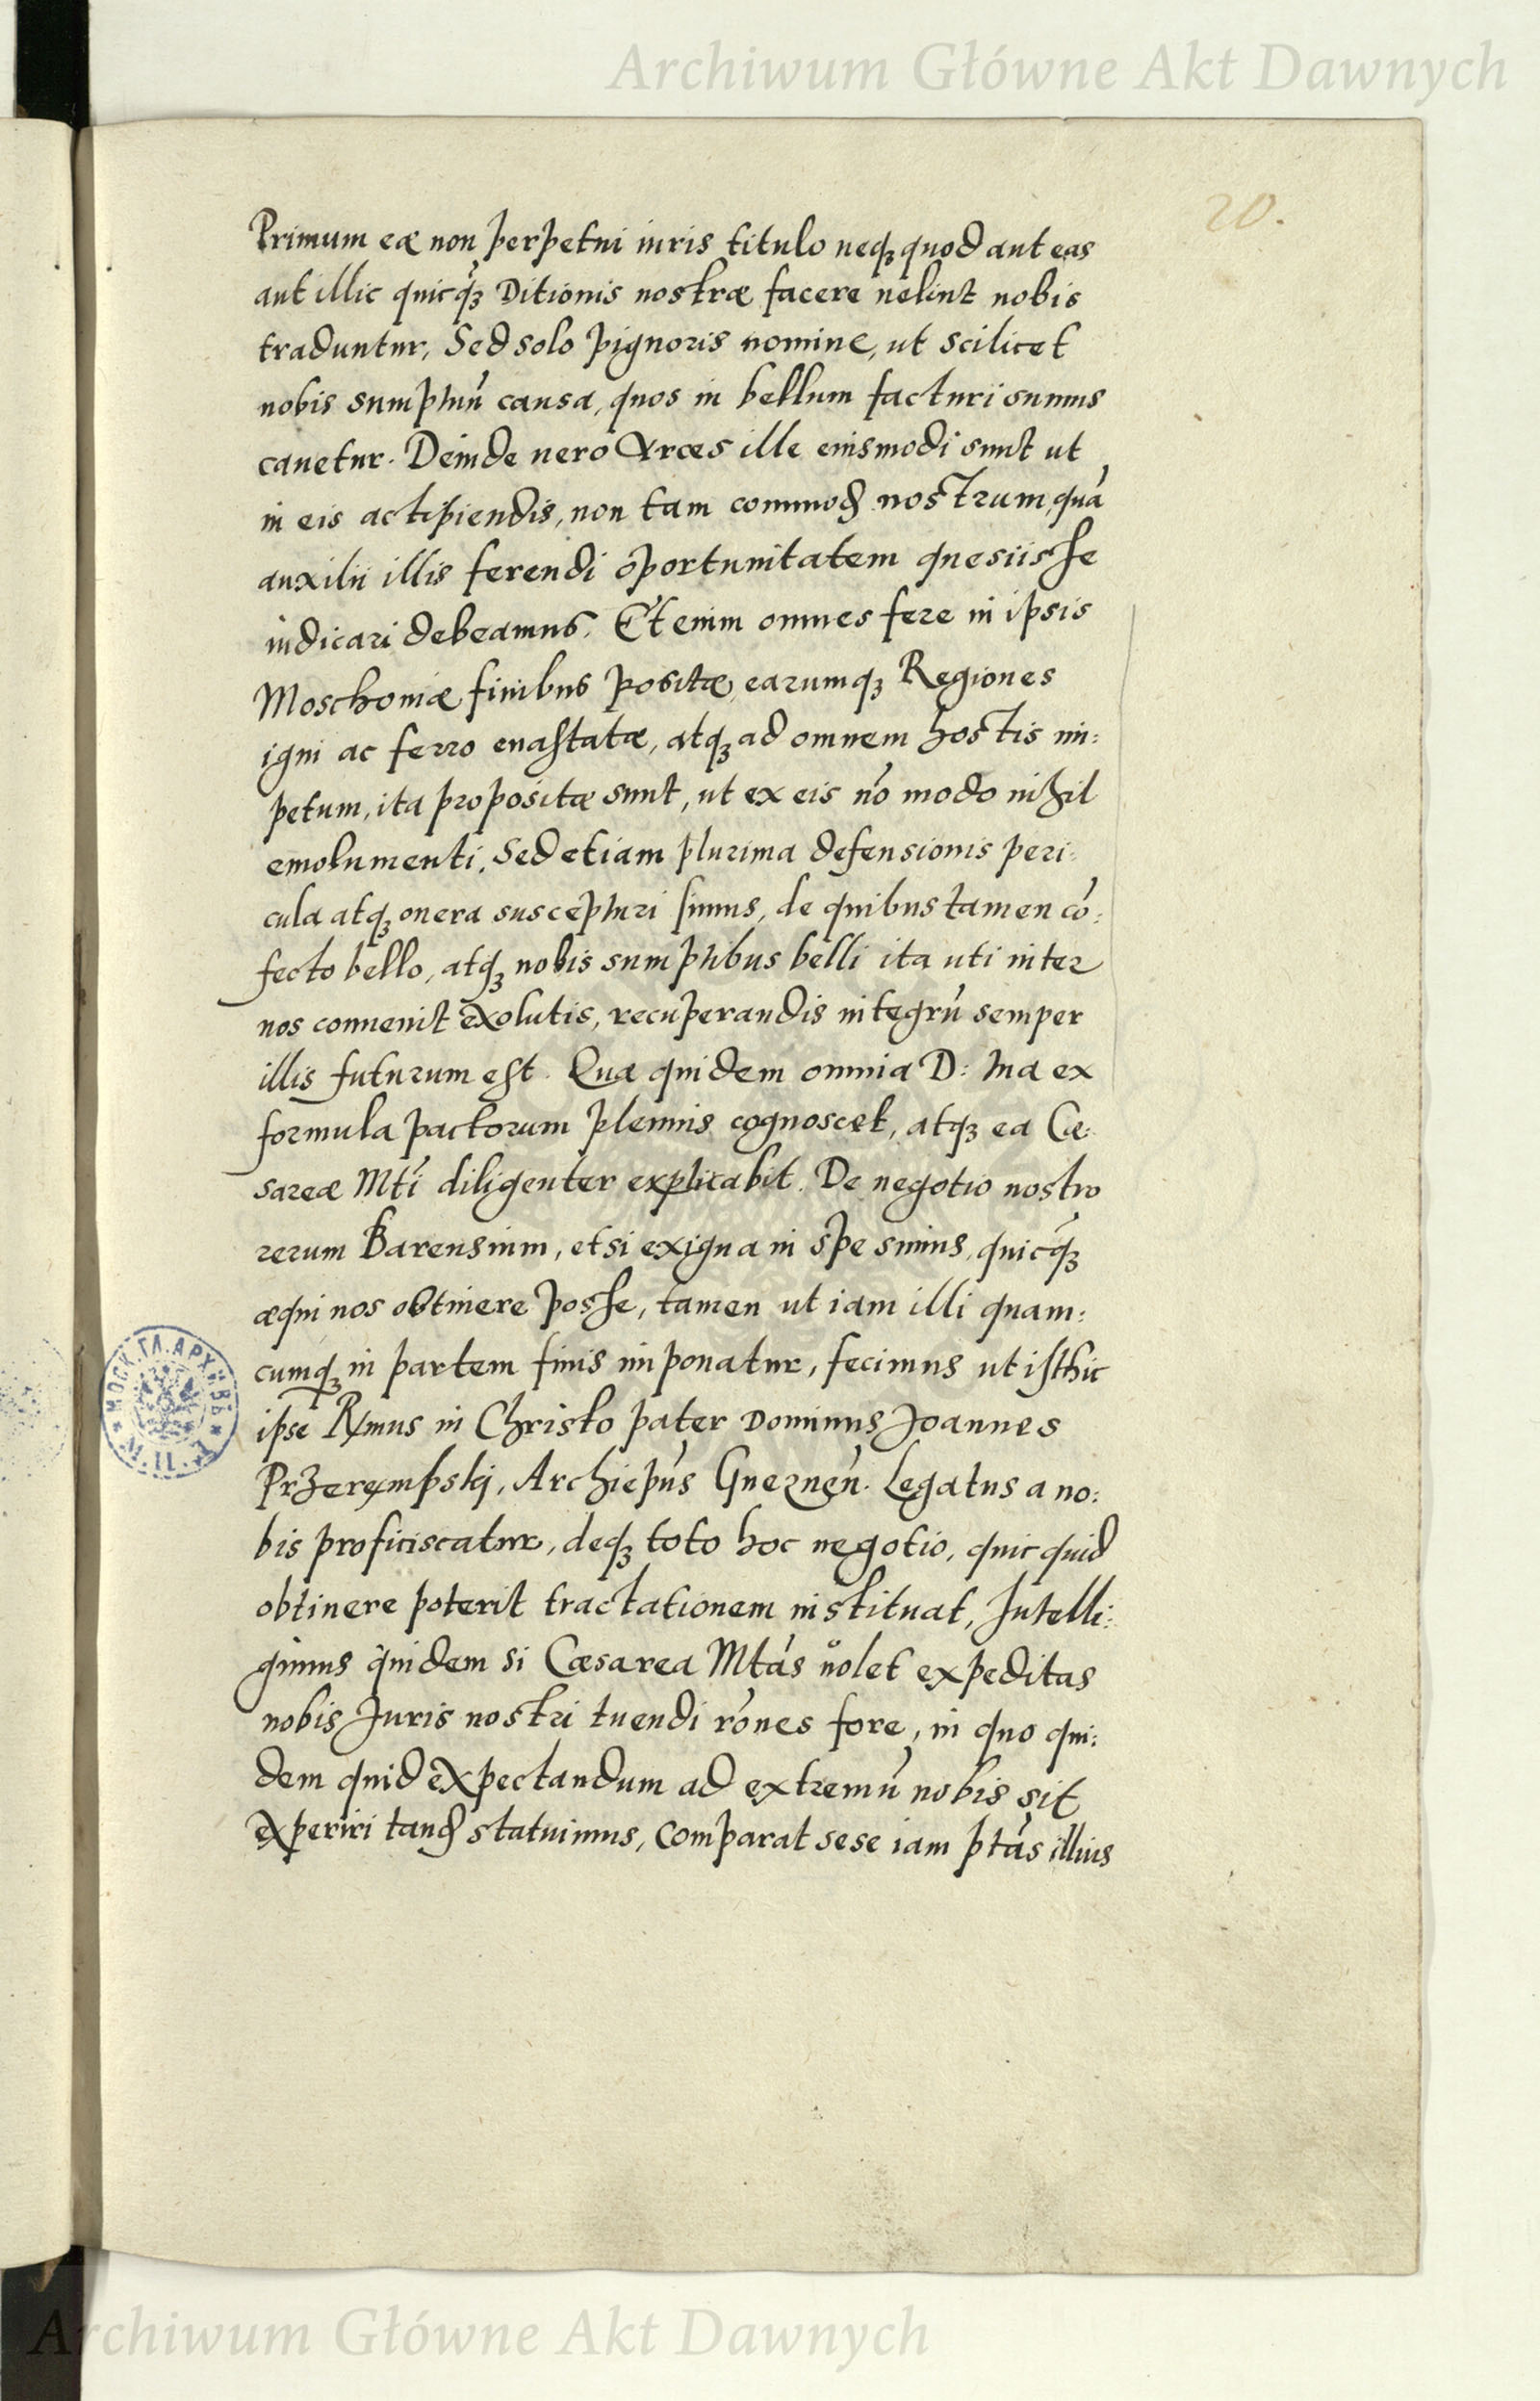 Archiwum Główne Akt Dawnych
20.
Primum eæ non perpetui iuris titulo neqꝫ quod aut eas
aut illic quicq́ꝫ Ditionis nostræ facere uelint nobis
traduntur, Sed solo pignoris nomine, ut scilicet
nobis sumptuū causa, quos in bellum facturi sumus
cauetur. Deinde uero Arces ille eiusmodi sunt ut
in eis accipiendis, non tam commodū nostrum, quā
auxilii illis ferendi oportunitatem quesiisse
iudicari debeamus. Etenim omnes fere in ipsis
Moschouiæ finibus positæ, earumqꝫ Regiones
igni ac ferro euastatæ, atqꝫ ad omnem hostis im:
petum, ita propositæ sunt, ut ex eis nō modo nihil
emolumenti, Sed etiam plurima defensionis peri:
cula atqꝫ onera suscepturi simus, de quibus tamen cō:
fecto bello, atqꝫ nobis sumptibus belli ita uti inter
nos conuenit exolutis, recuperandis integrū semper
illis futurum est. Quæ quidem omnia D: tua ex
formula pactorum plenius cognoscet, atqꝫ ea Cæ:
sareæ Mti diligenter explicabit. De negotio nostro
rerum Barensium, etsi exigua in spe simus, quicq́ꝫ
æqui nos obtinere posse, tamen ut iam illi quam:
cumqꝫ in partem finis imponatur, fecimus ut isthic
ipse Rmus in Christo pater Dominus Joannes
Przerempskj, Archiepūs Gneznēn. Legatus a no:
bis proficiscatur, deqꝫ toto hoc negotio, quicquid
obtinere poterit tractationem instituat, Intelli:
gimus quidem si Cæsarea Mtás uolet expeditas
nobis Juris nostri tuendi rōnes fore, in quo qui:
dem quid expectandum ad extremū nobis sit
experiri tandē statuimus, Comparat sese iam ptás illius
МОСК. ГЛ. АРХИВЪ
Archiwum Główne Akt Dawnych